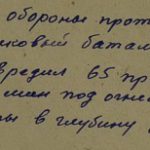 обороны прот
иковый батал
вредил 65 пр
мин под огне
ы в глубину